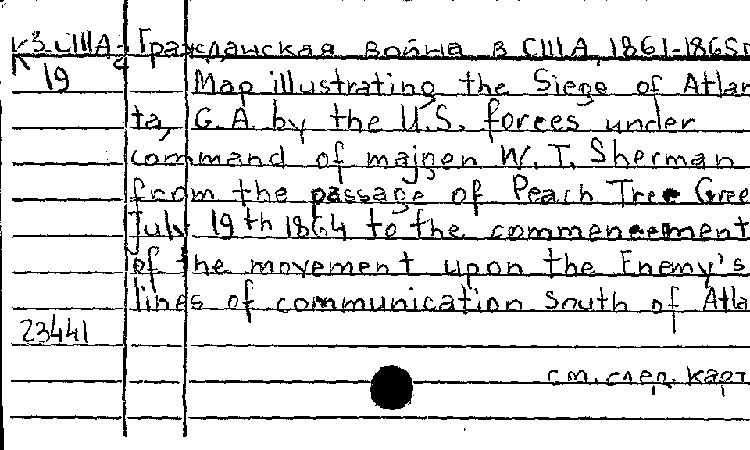 К3-США- Гражданская война в США, 1861-1865г
К 19 Map illustrating the Siege of Atlan
ta, G.A by the U.S. forces under
command of majgen W. T. Sherman
from the passage of Peach Tree Gree
July 19th 1864 to the commencement
of the movement upon the Enemy's
lines of communication South of Atla
23441
см. след. карт